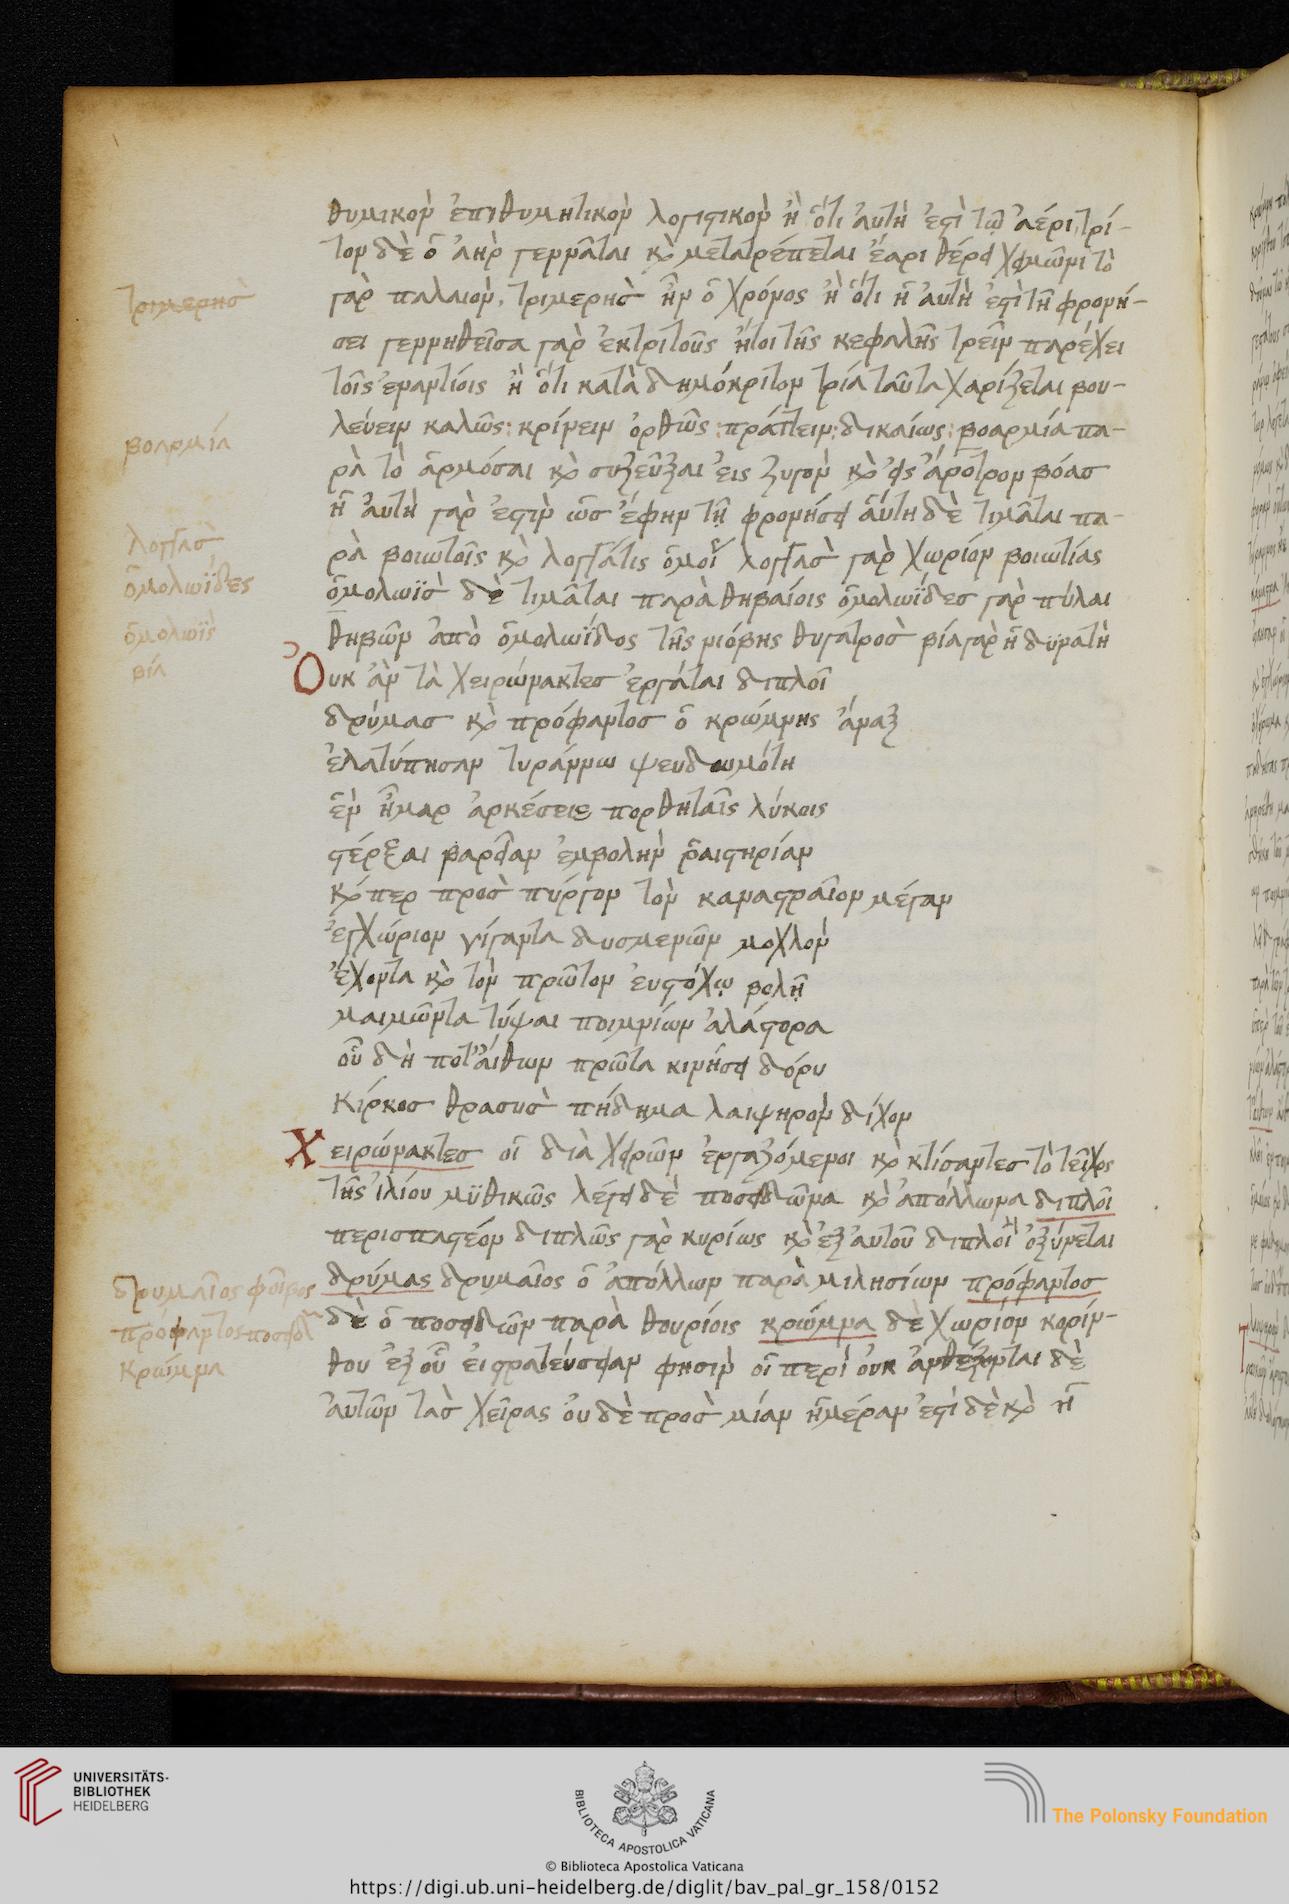 θυμικὸν ἐπιθυμητικὸν λογιστικὸν ἢ ὅτι αὐτὴ ἐστὶ τῷ ἀέρι, τρί-
τον δὲ ὁ ἀὴρ γεννᾶται καὶ μετατρέπεται ἔαρι θέρει χειμῶνι τὸ
τριμερὴσ
γὰρ παλαιὸν, τριμερὴσ ἦν ὁ χρόνος ἢ ὅτι ἡ αὐτὴ ἐστὶ τῆ φρονή-
σει γεννηθεῖσα γὰρ ἐκ τριτοῦς ἤτοι τῆς κεφαλῆς τρεῖν παρέχει
τοῖς ἐναντίοις ἢ ὅτι κατὰ δημόκριτον τρία ταῦτα χαρίζεται βου-
βοαρμία
λεύειν καλῶς: κρίνειν ὀρθῶς: πράττειν: δικαίως: βοαρμία πα-
ρὰ τὸ ἁρμόσαι καὶ συζεῦξαι εἰς ζυγὸν καὶ εἰς ἄροτρον βόασ
ἡ αὐτὴ γὰρ ἐστὶν ὡσ ἔφην τῇ φρονήσει αὕτη δὲ τιμᾶται πα-
λογγασ
ρὰ βοιωτοῖς καὶ λογγάτις λογγασ γὰρ χωρίον βοιωτίας
ὁμολωΐδες
ὁμολωῒσ δὲ τιμᾶται παρὰ θηβαίοις ὁμολωΐδεσ γὰρ πύλαι
ὁμολωῒς
θηβῶν ἀπὸ ὁμολωΐδος τῆς νιόβης θυγατροσ βία γὰρ ἡ δυνατὴ
βία
Οὐκ ἂν τὰ χειρώνακτεσ ἐργάται διπλοῖ
δρύμασ καὶ πρόφαντοσ ὁ κρώμνης ἄναξ
ἐλατύπησαν τυράννω ψευδωμότη
ἓν ἦμαρ ἀρκέσειε πορθηταῖς λύκοις
στέρξαι βαρεῖαν ἐμβολὴν ῥαιστηρίαν
καίπερ προσ πύργον τὸν καναστραῖον μέγαν
ἐγχώριον γίγαντα δυσμενῶν μοχλὸν
ἔχοντα καὶ τὸν πρῶτον εὐστόχῳ βολῇ
μαιμῶντα τύψαι ποιμνίων ἀλάστορα
οὗ δὴ ποτ' αἴθων πρῶτα κινήσει δόρυ
κίρκοσ θρασυσ πήδημα λαιψηρὸν δίχον
Χειρώνακτεσ οἱ διὰ χειρῶν ἐργαζόμενοι καὶ κτίσαντεσ τὸ τεῖχος
τῆς ἰλίου μϋθικῶς λέγει δὲ ποσειδῶνα καὶ ἀπόλλωνα διπλοῖ
περισπαστέον διπλῶς γὰρ κυρίως καὶ ἐξ αὐτοῦ διπλοῖ ὀξύνεται
δρυμαῖος φοῖβος
δρύμας δρυμαῖος ὁ ἀπόλλων παρὰ μιλησίων πρόφαντοσ
πρόφαντος ποσειδ
δὲ ὁ ποσειδῶν παρὰ θουρίοις κρώμνα δὲ χωρίον κορίν-
κρώμνα
θου ἐξ οὗ ἐιστρατεύσειαν φησὶν οἱ περὶ οὐκ ἀνθέξονται δὲ
αὐτῶν τὰσ χεῖρας οὐδὲ προσ μίαν ἡμέραν ἐστὶ δὲ καὶ ἡ
UNIVERSITÄTS-
BIBLIOTHEK
HEIDELBERG
BIBLIOTECA APOSTOLICA VATICANA
The Polonsky Foundation
© Biblioteca Apostolica Vaticana
https://digi.ub.uni-heidelberg.de/diglit/bav_pal_gr_158/0152